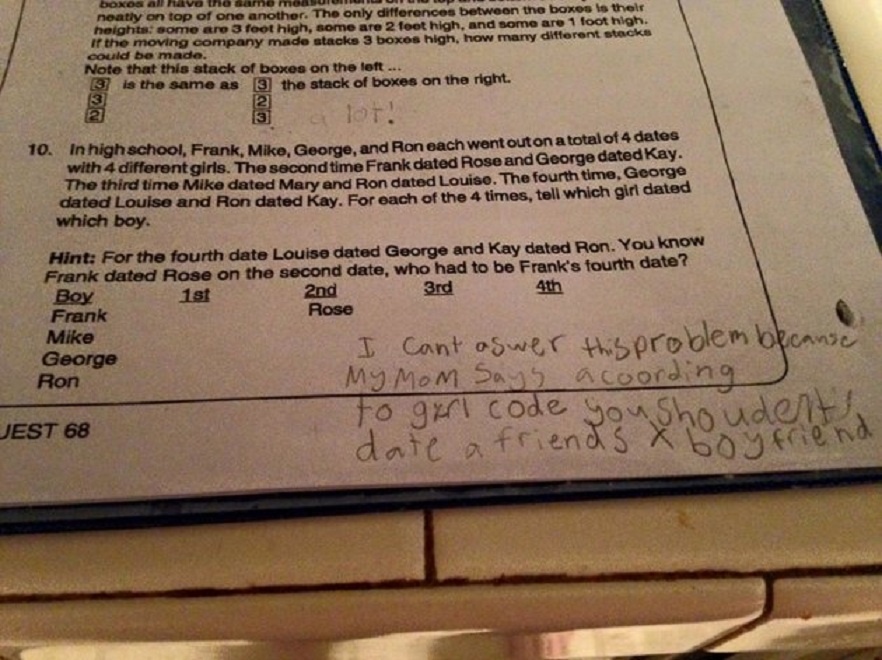 boxes all have the same measurements on the top and
neatly on top of one another. The only differences between the boxes is their
heights: some are 3 feet high, some are 2 feet high, and some are 1 foot high.
If the moving company made stacks 3 boxes high, how many different stacks
could be made.
Note that this stack of boxes on the left ...
3 is the same as 3 the stack of boxes on the right.
3 2
2 3 a lot!
10. In high school, Frank, Mike, George, and Ron each went out on a total of 4 dates
with 4 different girls. The second time Frank dated Rose and George dated Kay.
The third time Mike dated Mary and Ron dated Louise. The fourth time, George
dated Louise and Ron dated Kay. For each of the 4 times, tell which girl dated
which boy.
Hint: For the fourth date Louise dated George and Kay dated Ron. You know
Frank dated Rose on the second date, who had to be Frank's fourth date?
Boy 1st 2nd 3rd 4th
Frank Rose
Mike
George
Ron
I cant aswer this problem becanse
My MoM Says acoording
to girl code you shoudent
date a friends X boyfriend
UEST 68